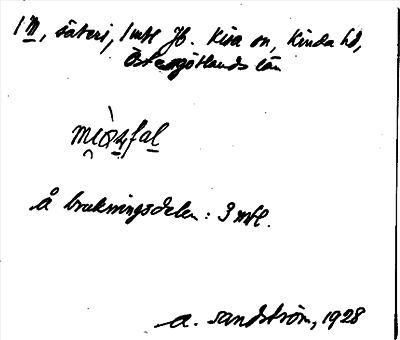 1 M, säteri, 1 mtl Jb. Kisa sn, Kinda hd,
Östergötlands län
Å brukningsdelen: 3 mtl.
A. Sandström, 1928